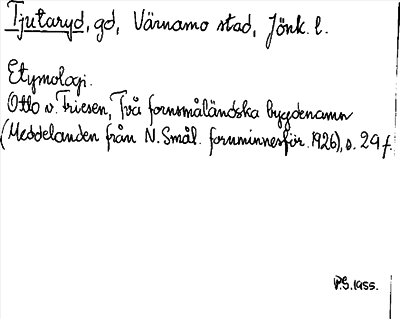 Tjutaryd, gd, Värnamo stad, Jönk. l.
Etymologi.
Otto v. Friesen, Två fornsmåländska bygdenamn
(Meddelanden från N. Smål. fornminnesför. 1926), s. 29 f.
P.S. 1955.